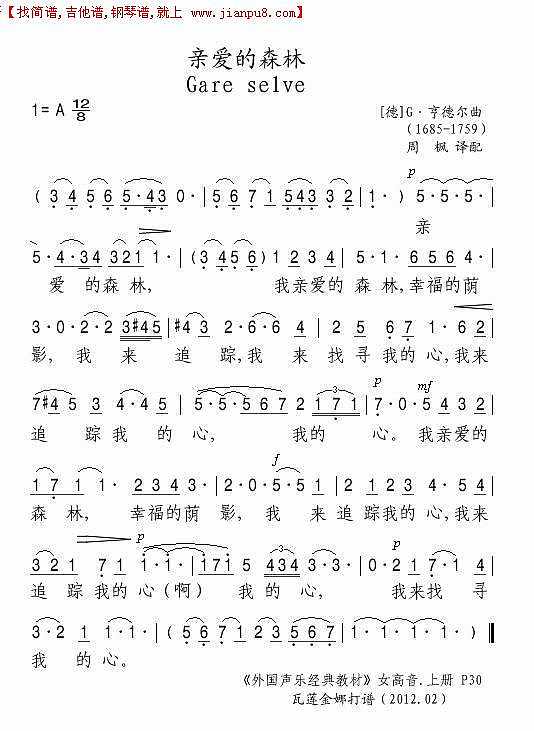 【找简谱,吉他谱,钢琴谱,就上 www.jianpu8.com】
亲爱的森林
Gare selve
1= A 12/8
[德]G·亨德尔曲
(1685-1759)
周 枫 译配
p
( 3 4 5 6 5·43 0· | 5 6 7 1 543 3 2 | 1· ) 5·5·5·
亲
5·4·34 321 1· | (3 456) 1 2 3 4 | 5·1· 656 4·
爱 的森 林, 我亲爱的 森 林,幸福的荫
3·0·2·2 3#45 | #4 3 2·6·6 4 | 2· 5 6 7 1· 6 2
影, 我 来 追 踪,我 来 找 寻 我的 心,我来
p mf
7#45 5 3 4·4 5 | 5·5·5 6 7 2 1 7 1 | 7·0·5 4 3 2
追 踪 我 的 心, 我的 心。 我亲爱的
f
1 7 1 1· 2 3 4 3· | 2·0·5·5 | 2 1 2 3 4· 5 4
森 林, 幸福的荫 影, 我 来 追 踪我的 心,我来
p 3 3 p
3 2 1 7 1 1·1· | 1·171 5 434 3 3· | 0·2 1 7· 1
追 踪 我的 心(啊) 我 的 心, 我来找 寻
3·2 1 1·1· | ( 5 6 7 1 2 3 5 6 5 | 1· 1· )
我 的 心。
《外国声乐经典教材》女高音.上册 P30
瓦莲金娜打谱(2012.02)